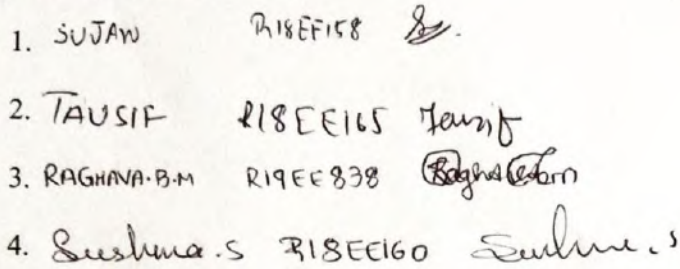 1. SUJAN R18EE158
2. TAUSIF R18EE165 Tausif
3. RAGHAVA.B.M R19EE838
4. Sushma.S R18EE160